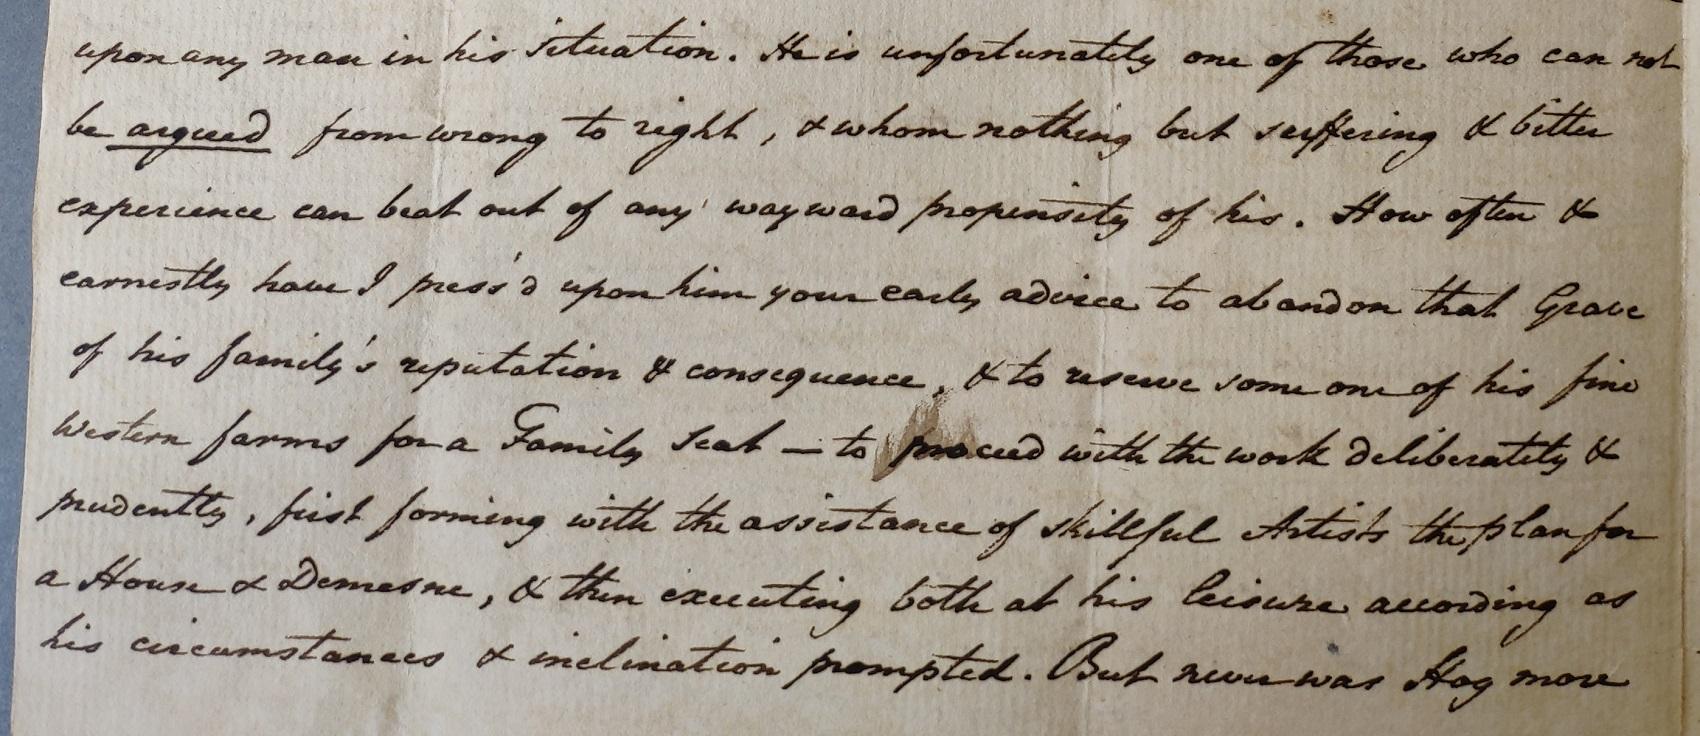 upon any man in his situation. He is unfortunately one of those who can not
be argued from wrong to right, & whom nothing but suffering & bitter
experience can beat out of any wayward propensity of his. How often &
earnestly have I press'd upon him your early advice to abandon that Grave
of his family's reputation & consequence, & to reserve some one of his fine
Western farms for a Family Seat — to proceed with the work deliberately &
prudently, first forming with the assistance of skillful Artists the plan for
a House & Demesne, & then executing both at his leisure according as
his circumstances & inclination prompted. But never was Hog more